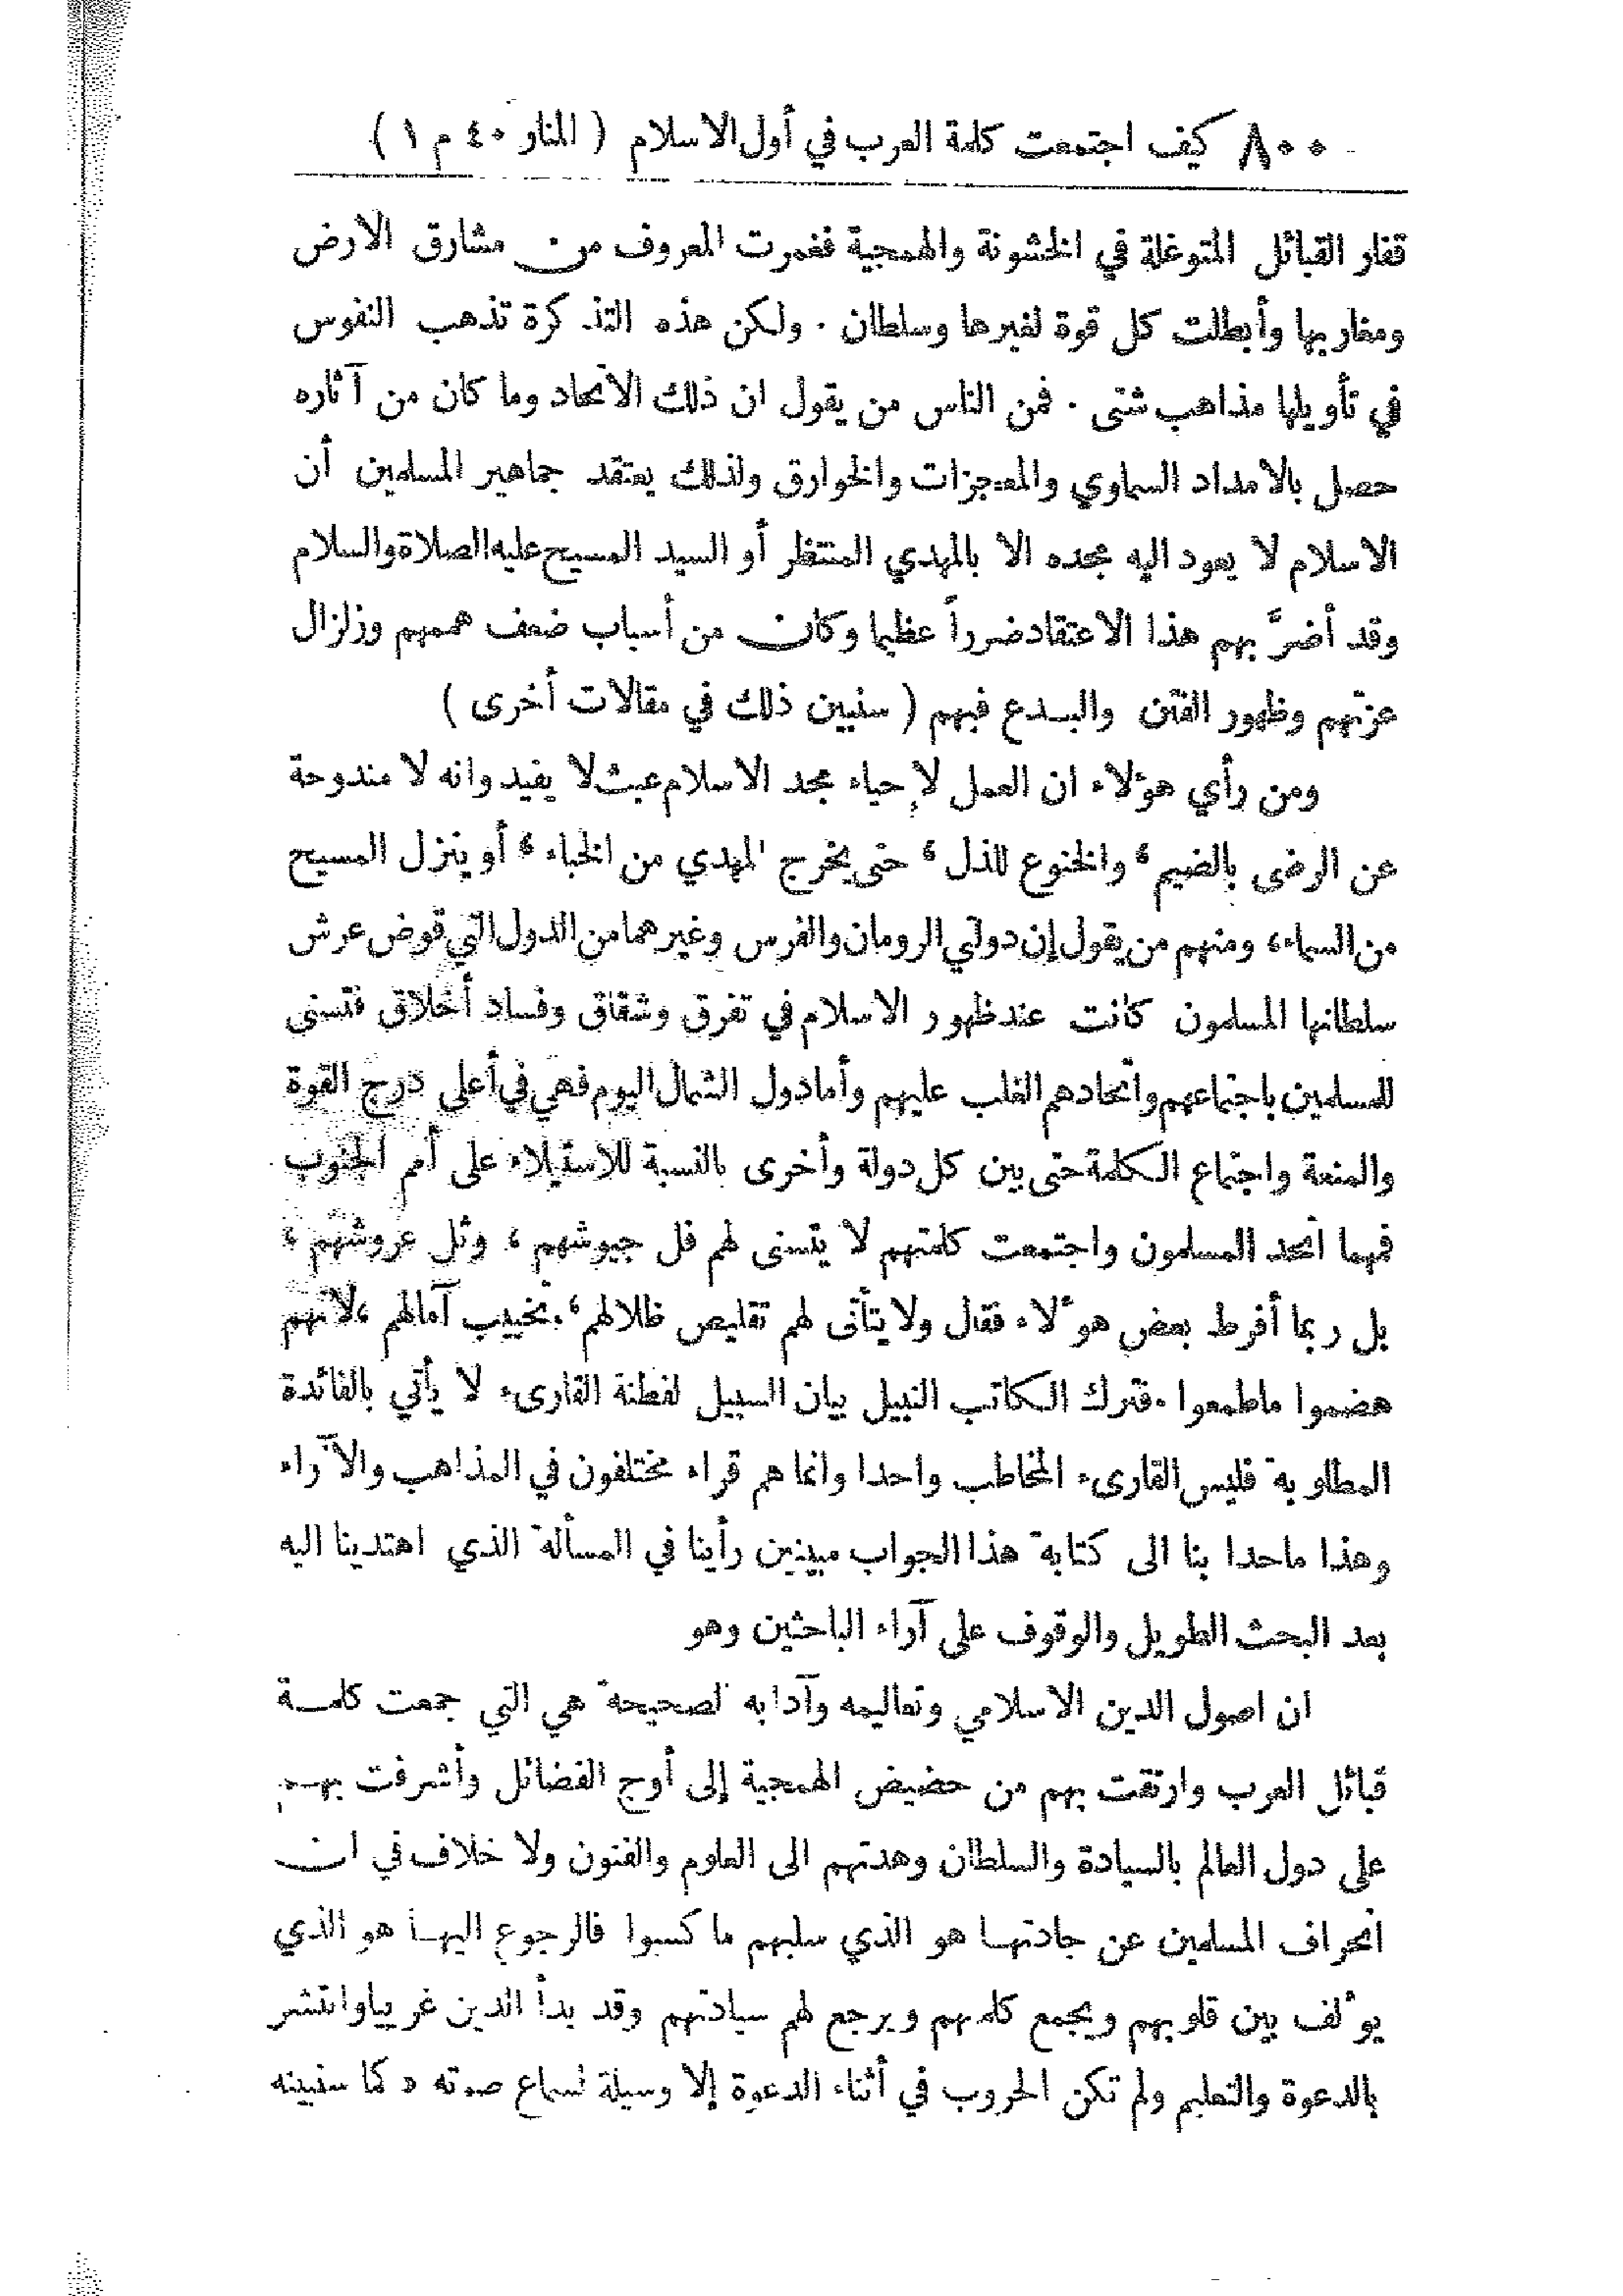 ٨٠٠ كيف اجتمعت كلمة العرب في أول الاسلام ( المنار ٤٠ م ١ )
قفار القبائل المتوغلة في الخشونة والهمجية فغمرت المعروف من مشارق الارض
ومغاربها وأبطلت كل قوة لغيرها وسلطان . ولكن هذه التذكرة تذهب النفوس
في تأويلها مذاهب شتى . فمن الناس من يقول ان ذلك الاتحاد وما كان من آثاره
حصل بالامداد السماوي والمعجزات والخوارق ولذلك يعتقد جماهير المسلمين أن
الاسلام لا يعود اليه مجده الا بالمهدي المنتظر أو السيد المسيح عليه الصلاة والسلام
وقد أضرَّ بهم هذا الاعتقاد ضرراً عظيما وكان من أسباب ضعف هممهم وزلزال
عزتهم وظهور الفتن والبدع فيهم ( سنبين ذلك في مقالات أخرى )
ومن رأي هؤلاء ان العمل لإحياء مجد الاسلام عبث لا يفيد وانه لا مندوحة
عن الرضى بالضيم ، والخنوع للذل ، حتى يخرج المهدي من الخباء ، أو ينزل المسيح
من السماء ، ومنهم من يقول إن دولتي الرومان والفرس وغيرهما من الدول التي قوض عرش
سلطانها المسلمون كانت عند ظهور الاسلام في تفرق وشقاق وفساد أخلاق فتسنى
للمسلمين باجتماعهم واتحادهم الغلب عليهم وأما دول الشمال اليوم فهي في أعلى درج القوة
والمنعة واجتماع الكلمة حتى بين كل دولة وأخرى بالنسبة للاستيلاء على أمم الجنوب
فمهما اتحد المسلمون واجتمعت كلمتهم لا يتسنى لهم فل جيوشهم ، وثل عروشهم ،
بل ربما أفرط بعض هؤلاء فقال ولا يتأتى لهم تقليص ظلالهم ، بتخييب آمالهم ، لانهم
هضموا ما طمعوا . فترك الكاتب النبيل بيان السبيل لفطنة القارىء لا يأتي بالفائدة
المطلوبة فليس القارىء المخاطب واحدا وانما هم قراء مختلفون في المذاهب والآراء
وهذا ما حدا بنا الى كتابة هذا الجواب مبينين رأينا في المسألة الذي اهتدينا اليه
بعد البحث الطويل والوقوف على آراء الباحثين وهو
ان اصول الدين الاسلامي وتعاليمه وآدابه الصحيحة هي التي جمعت كلمة
قبائل العرب وارتقت بهم من حضيض الهمجية إلى أوج الفضائل وأشرفت بهم
على دول العالم بالسيادة والسلطان وهدتهم الى العلوم والفنون ولا خلاف في ان
انحراف المسلمين عن جادتها هو الذي سلبهم ما كسبوا فالرجوع اليها هو الذي
يؤلف بين قلوبهم ويجمع كلمتهم ويرجع لهم سيادتهم وقد بدأ الدين غريبا وانتشر
بالدعوة والتعليم ولم تكن الحروب في أثناء الدعوة إلا وسيلة لسماع صوته « كما سنبينه